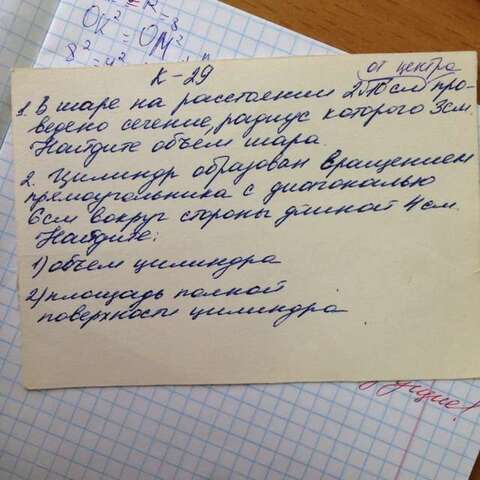 OK² = R = 8
8² = OM²
К-29
от центра
1. В шаре на расстоянии 2√10 см про-
ведено сечение, радиус которого 3см.
Найдите объем шара.
2. Цилиндр образован вращением
прямоугольника с диагональю
6см вокруг стороны длиной 4 см.
Найдите:
1) объем цилиндра
2) площадь полной
поверхности цилиндра